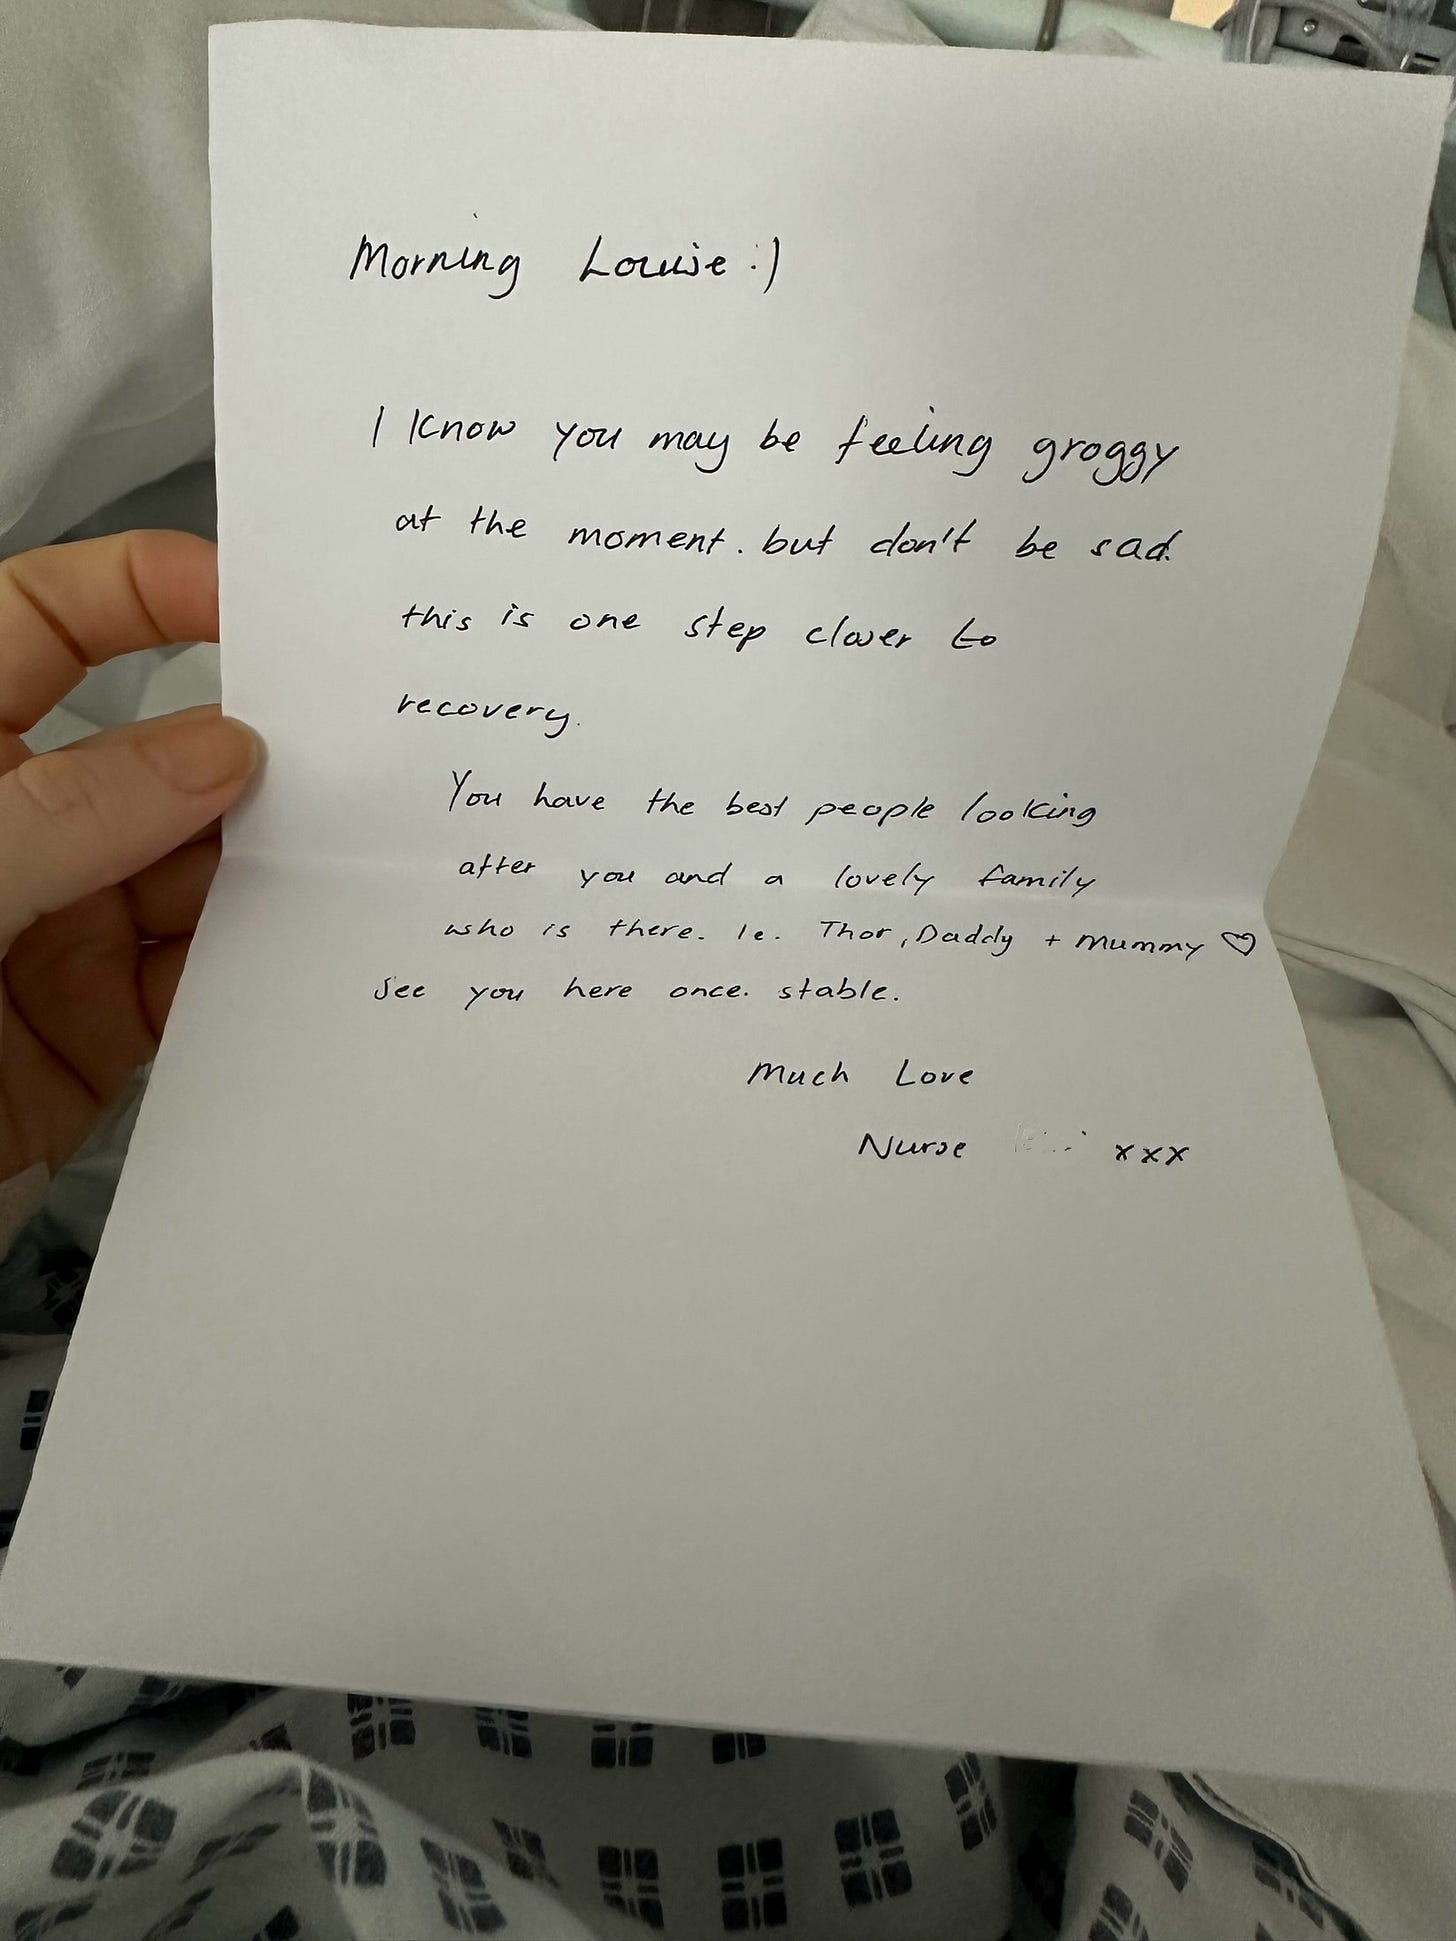 Morning Louise :)
I know you may be feeling groggy
at the moment. but don't be sad.
this is one step closer to
recovery.
You have the best people looking
after you and a lovely family
who is there. Ie. Thor, Daddy + Mummy ♡
See you here once. stable.
Much Love
Nurse xxx